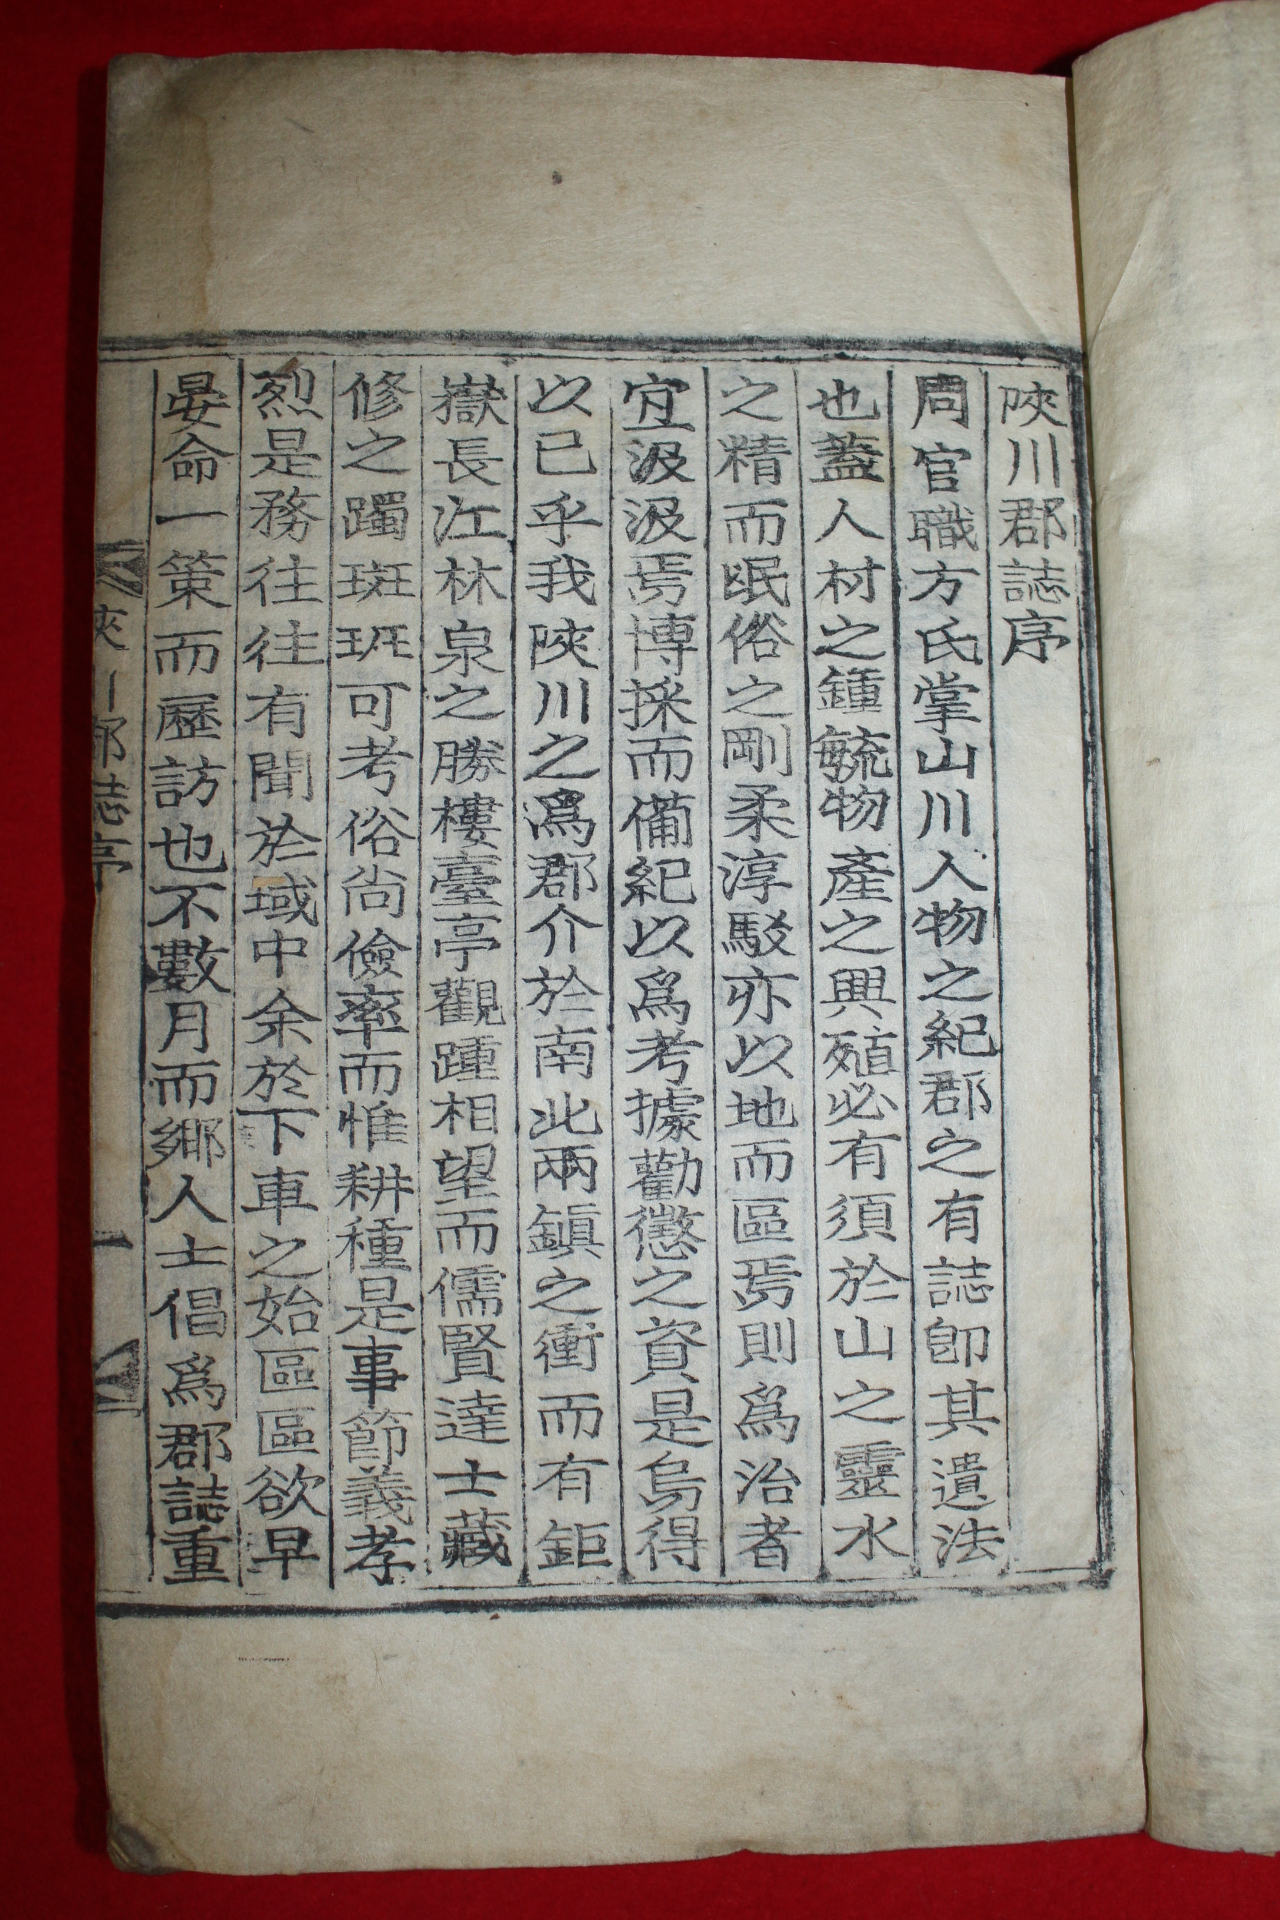 陜川郡誌序
周官職方氏掌山川人物之紀郡之有誌卽其遺法
也蓋人材之鍾毓物產之興殖必有須於山之靈水
之精而氓俗之剛柔淳駁亦以地而區焉則爲治者
宜汲汲焉博採而備紀以爲考據勸懲之資是烏得
以已乎我陜川之爲郡介於南北兩鎭之衝而有鉅
嶽長江林泉之勝樓臺亭觀踵相望而儒賢達士藏
修之躅斑斑可考俗尙儉率而惟耕種是事節義孝
烈是務往往有聞於域中余於下車之始區區欲早
晏命一策而歷訪也不數月而鄉人士倡爲郡誌重
陜川郡誌序 一